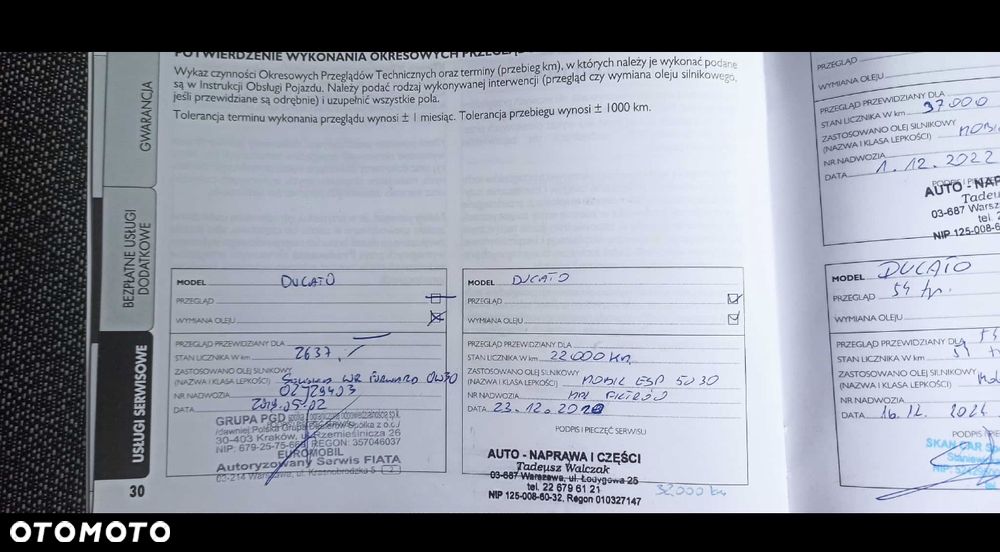 POTWIERDZENIE WYKONANIA OKRESOWYCH
Wykaz czynności Okresowych Przeglądów Technicznych oraz terminy (przebieg km), w których należy je wykonać podane
są w Instrukcji Obsługi Pojazdu. Należy podać rodzaj wykonywanej interwencji (przegląd czy wymiana oleju silnikowego,
jeśli przewidziane są odrębnie) i uzupełnić wszystkie pola.
Tolerancja terminu wykonania przeglądu wynosi ± 1 miesiąc. Tolerancja przebiegu wynosi ± 1000 km.
GWARANCJA
BEZPŁATNE USŁUGI
DODATKOWE
USŁUGI SERWISOWE
30
MODEL DUCATO
PRZEGLĄD
WYMIANA OLEJU
PRZEGLĄD PRZEWIDZIANY DLA
STAN LICZNIKA W km 2637
ZASTOSOWANO OLEJ SILNIKOWY
(NAZWA I KLASA LEPKOŚCI) 0W30
NR NADWOZIA
DATA
GRUPA PGD
30-403 Kraków, ul. Rzemieślnicza 26
REGON: 357046037
EUROMOBIL
Autoryzowany Serwis FIATA
03-214 Warszawa, ul. Krasnobrodzka 5
MODEL DUCATO
PRZEGLĄD
WYMIANA OLEJU
PRZEGLĄD PRZEWIDZIANY DLA
STAN LICZNIKA W km 22000 km
ZASTOSOWANO OLEJ SILNIKOWY
(NAZWA I KLASA LEPKOŚCI) MOBIL ESP 5W30
NR NADWOZIA FILTRÓW
DATA 23.12.
PODPIS I PIECZĘĆ SERWISU
AUTO - NAPRAWA I CZĘŚCI
Tadeusz Walczak
03-687 Warszawa, ul. Łodygowa 25
tel. 22 679 61 21
NIP 125-008-60-32, Regon 010327147
32000 km
PRZEGLĄD
WYMIANA OLEJU
PRZEGLĄD PRZEWIDZIANY DLA
STAN LICZNIKA W km 37000
ZASTOSOWANO OLEJ SILNIKOWY
(NAZWA I KLASA LEPKOŚCI)
NR NADWOZIA
DATA 1.12.2022
AUTO - NAP
Tadeu
03-687 Warsz
tel.
NIP 125-008-6
MODEL DUCATO
PRZEGLĄD 54 tys.
WYMIANA OLEJU
PRZEGLĄD PRZEWIDZIANY DLA
STAN LICZNIKA W km
ZASTOSOWANO OLEJ SILNIKOWY
(NAZWA I KLASA LEPKOŚCI)
NR NADWOZIA
DATA 16.12. 2024
SKAN CAR
OTOMOTO